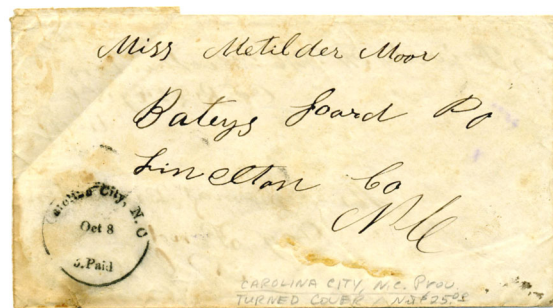 Miss Metilder Moor
Bateys foard Po
Linclton Co
NC
Carolina City, N.C
Oct 8
5.Paid
CAROLINA CITY, N.C. PROV.
TURNED COVER